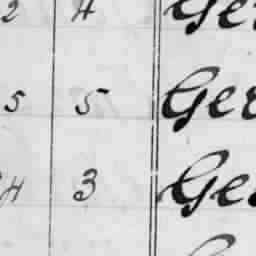 2 4 Ger
5 5 Ger
4 3 Ger